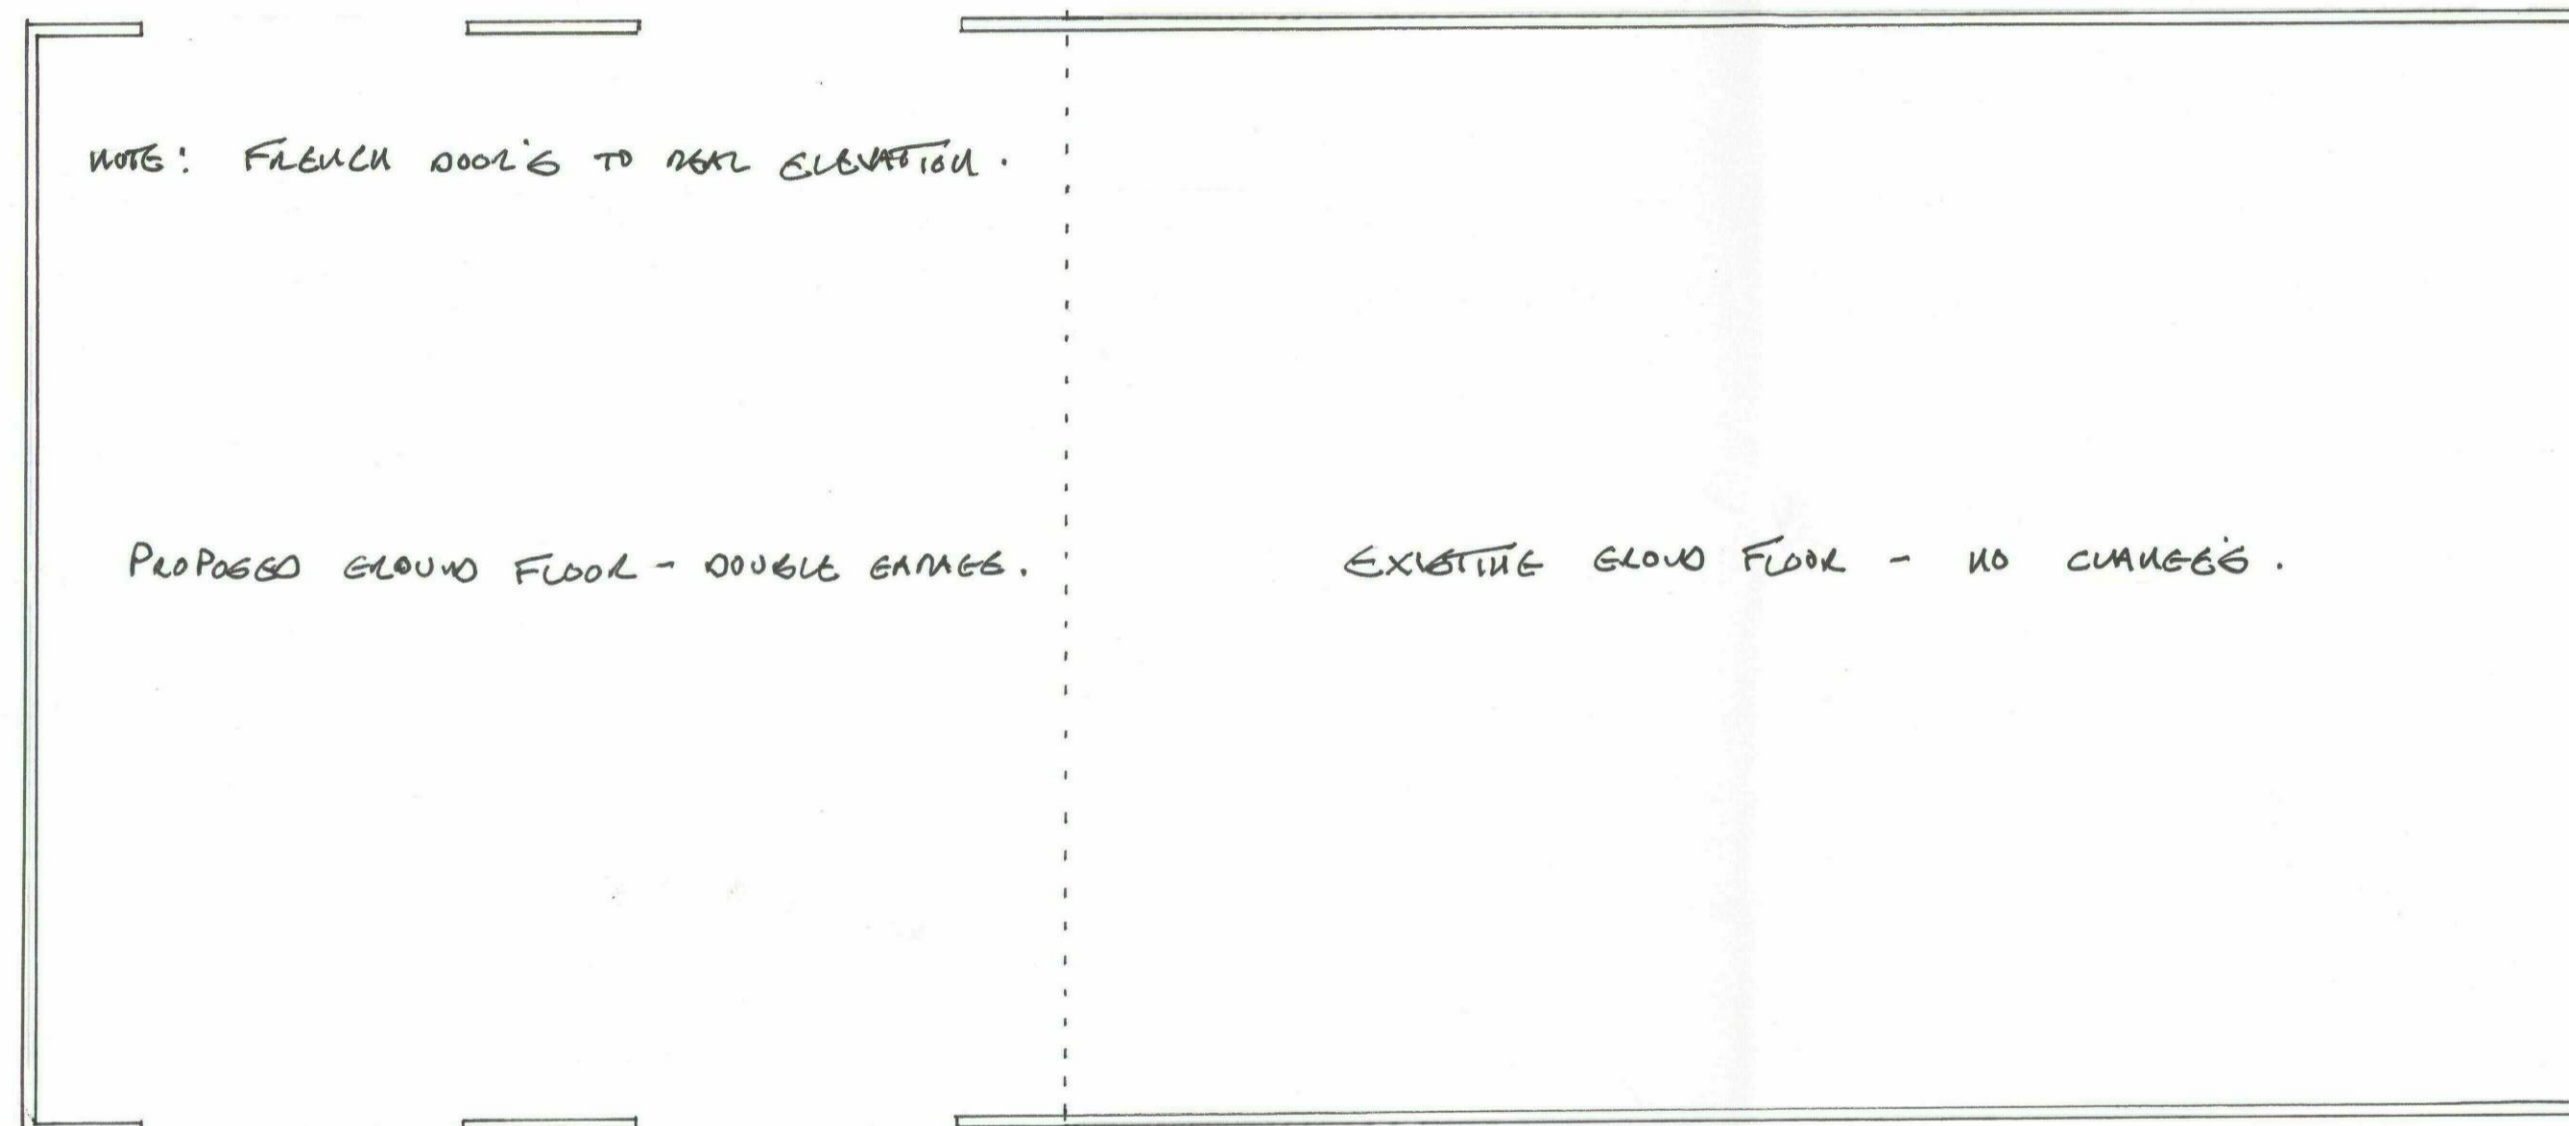 NOTE: FRENCH DOOR'S TO REAR ELEVATION.
PROPOSED GROUND FLOOR - DOUBLE GARAGE.
EXISTING GROUD FLOOR - NO CHANGE'S.